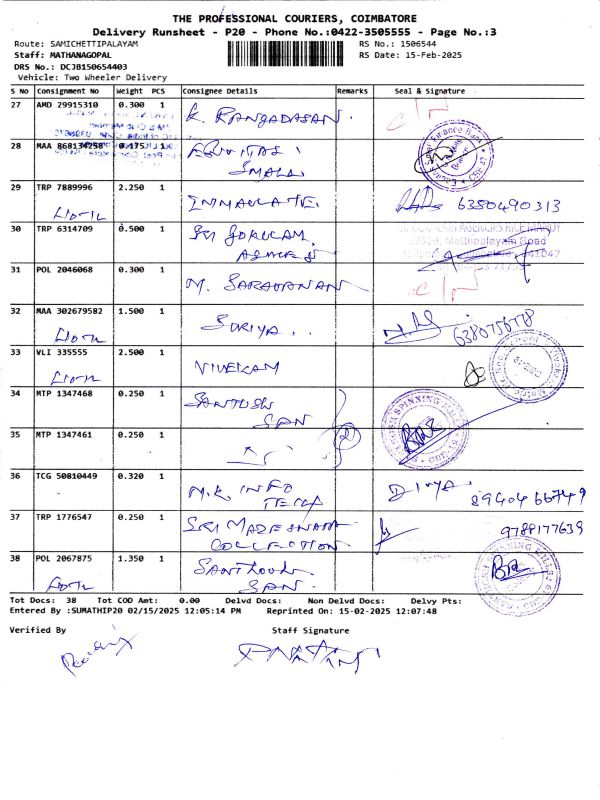 THE PROFESSIONAL COURIERS, COIMBATORE
Delivery Runsheet - P20 - Phone No.:0422-3505555 - Page No.:3
Route: SAMICHETTIPALAYAM RS No.: 1506544
Staff: MATHANAGOPAL RS Date: 15-Feb-2025
DRS No.: DCJB150654403
Vehicle: Two Wheeler Delivery
S No Consignment No Weight PCS Consignee Details Remarks Seal & Signature
27 AMD 29915310 0.300 1 K. RANGADASAN.
28 MAA 868134258 0.175 1
SMALL
29 TRP 7889996 2.250 1 IMMACULATE. 6380490313
30 TRP 6314709 0.500 1 SRI GOKULAM
Mettupalayam Road
31 POL 2046068 0.300 1 M. SARAVANAN
32 MAA 302679582 1.500 1 SURIYA..
33 VLI 335555 2.500 1 VIVEKAM
34 MTP 1347468 0.250 1 SANTOSH
SPN
35 MTP 1347461 0.250 1 2
36 TCG 50810449 0.320 1 M.K. INFO DIVYA.
TECH 8940466749
37 TRP 1776547 0.250 1 SRI MADESHWARA 9788177639
COLLECTION.
38 POL 2067875 1.350 1 SANTHOSH
SPN.
Tot Docs: 38 Tot COD Amt: 0.00 Delvd Docs: Non Delvd Docs: Delvy Pts:
Entered By :SUMATHIP20 02/15/2025 12:05:14 PM Reprinted On: 15-02-2025 12:07:48
Verified By Staff Signature